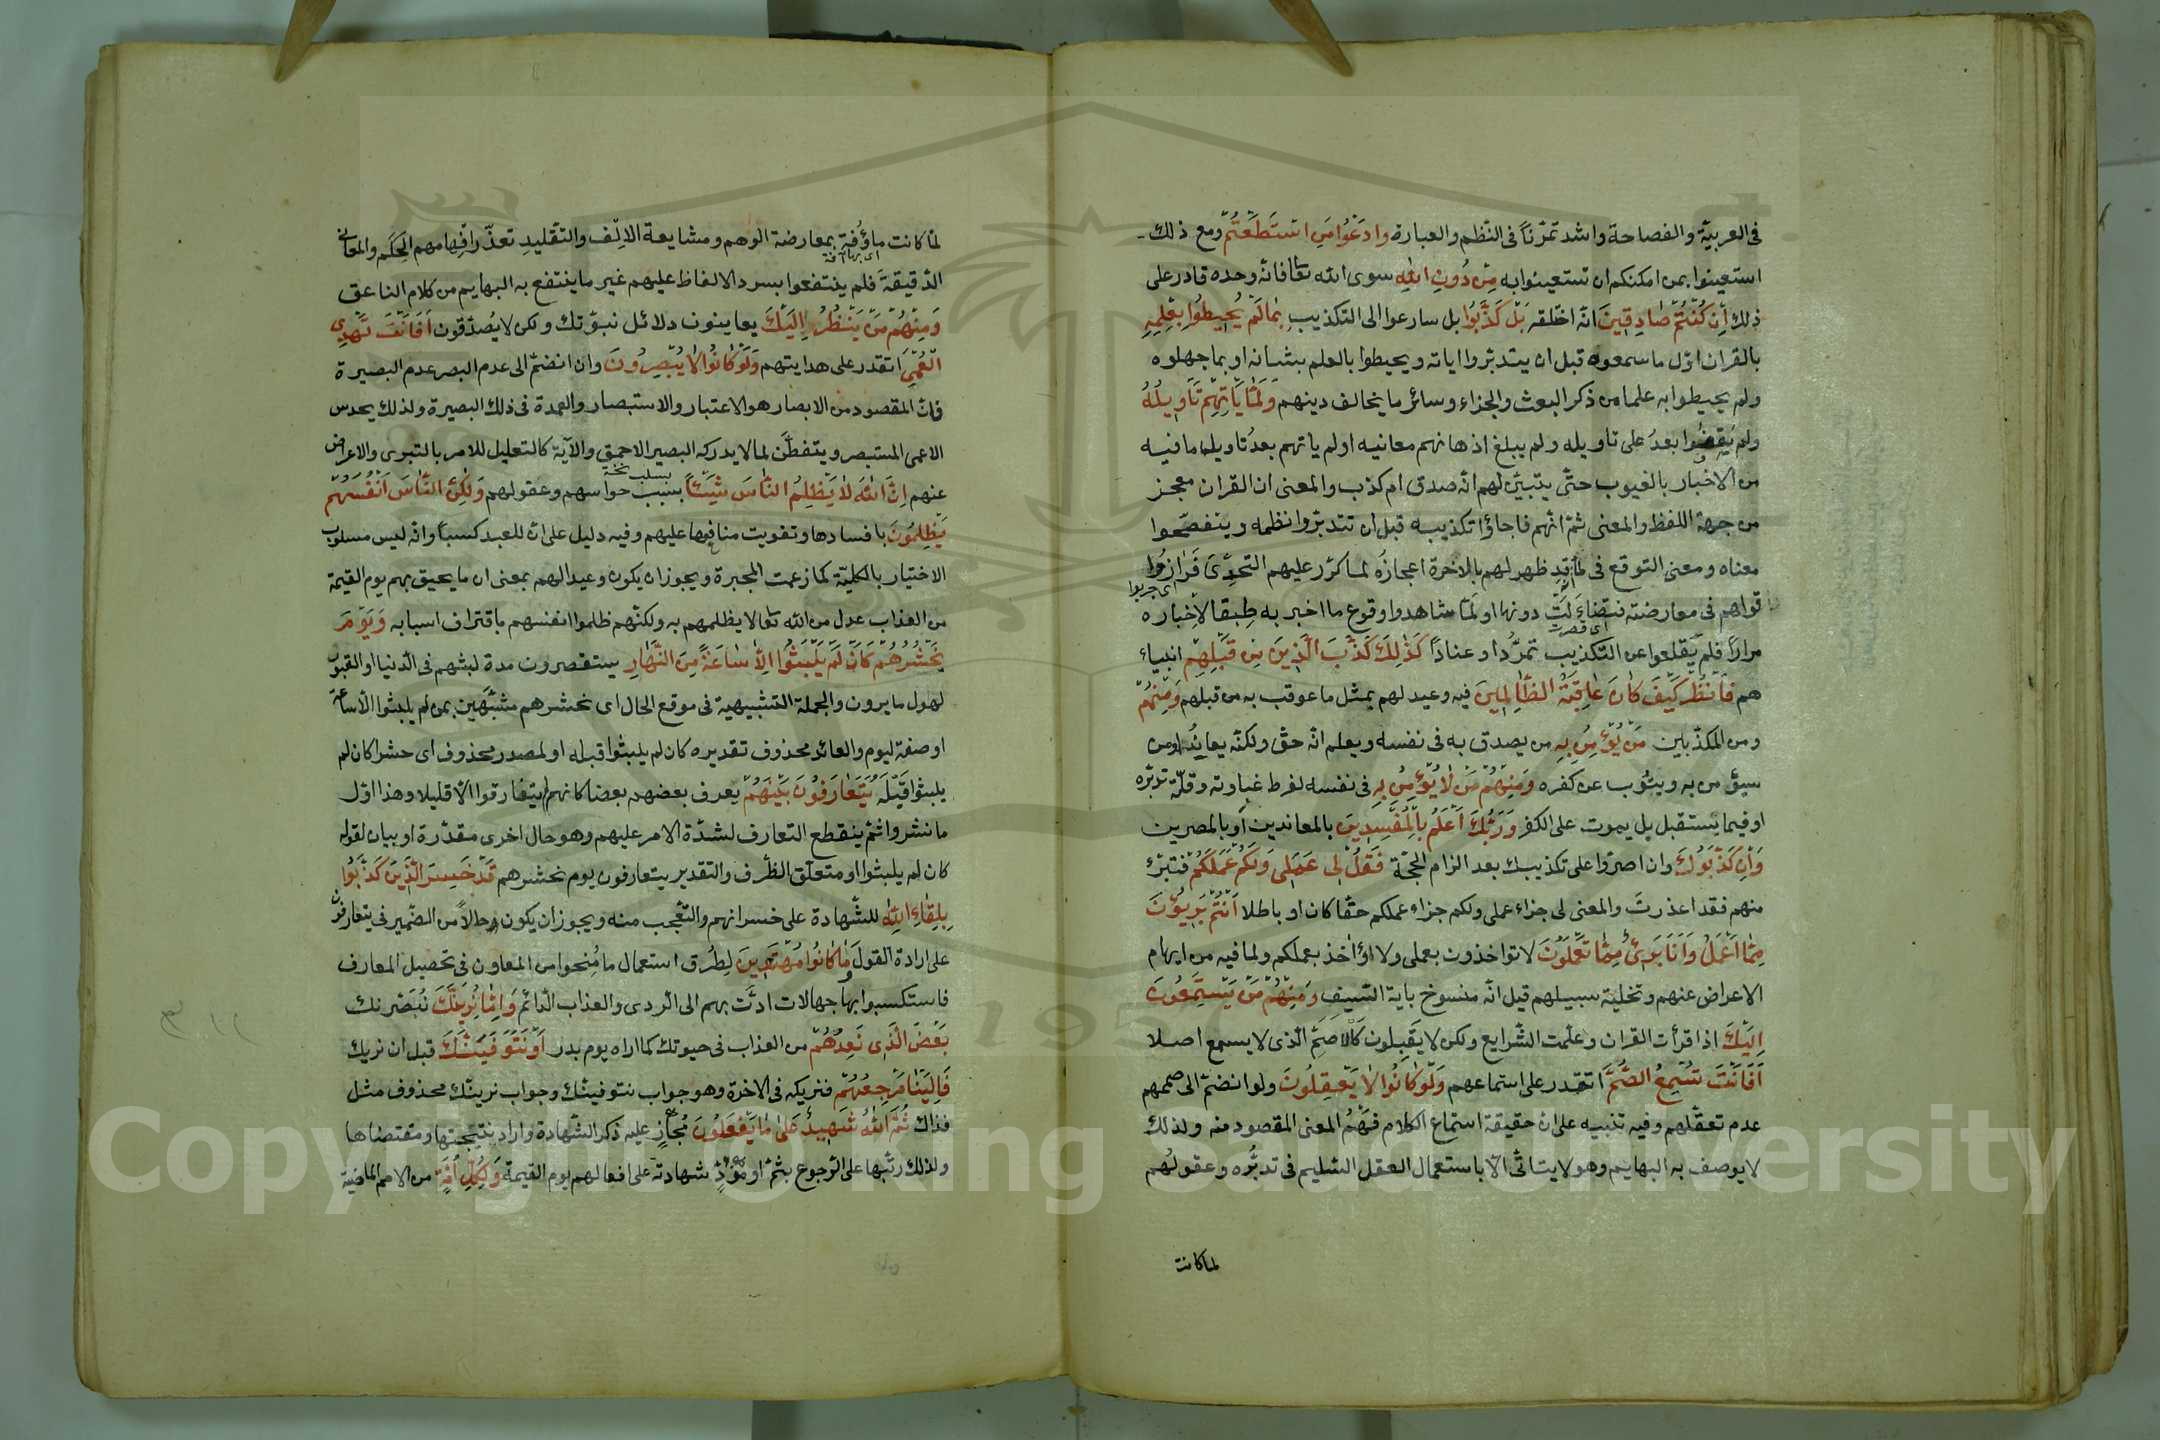 فى العربيّة والفصاحة واشد تمرّنا فى النّظم والعبارة وادعوا من استطعتم ومع ذلك
استعينوا بمن امكنكم ان تستعينوا به من دون الله سوى الله تعا فانه وحده قادر على
ذلك ان كنتم صادقين انه اختلقه بل كذبوا بل سارعوا الى التكذيب بما لم يحيطوا بعلمه
بالقران اوّل ما سمعوه قبل ان يتدبروا اياته ويحيطوا بالعلم بشانه او بما جهلوه
ولم يحيطوا به علما من ذكر البعث والجزاء وسائر ما يخالف دينهم ولمّا ياتهم تاويله
ولم يقفوا بعد على تاويله ولم يبلغ اذهانهم معانيه او لم ياتهم بعد تاويل ما فيه
من الاخبار بالغيوب حتّى يتبيّن لهم انه صدق ام كذب والمعنى ان القران معجز
من جهة اللفظ والمعنى ثمّ انهم فاجاؤا تكذيبه قبل ان تتدبّروا نظمه ويتفصّحوا
معناه ومعنى التوقع فى لمّا انه قد ظهر لهم بالاخرة اعجازه لما كرّر عليهم التحدّى فرازوا
اى جربوا
قواهم فى معارضته فتضاءلت دونها او لمّا شاهدوا وقوع ما اخبر به طبقا لاخباره
اى قصرت
مرارا فلم يقلعوا عن التكذيب تمرّدا وعنادا كذلك كذّب الذين من قبلهم انبياء
هم فانظر كيف كان عاقبة الظالمين فيه وعيد لهم بمثل ما عوقب به من قبلهم ومنهم
ومن المكذّبين من يؤمن به من يصدق به فى نفسه ويعلم انه حق ولكنّه يعاند او من
سيؤمن به ويتوب عن كفره ومنهم من لا يؤمن به فى نفسه لفرط غباوته وقلّة تدبّره
او فيما يستقبل بل يموت على الكفر وربّك اعلم بالمفسدين بالمعاندين او بالمصرين
وان كذّبوك وان اصرّوا على تكذيبك بعد الزام الحجّة فقل لى عملى ولكم عملكم فتبرّء
منهم فقد اعذرت والمعنى لى جزاء عملى ولكم جزاء عملكم حقّا كان او باطلا انتم بريؤن
ممّا اعمل وانا برىء ممّا تعملون لا تواخذون بعملى ولا اؤاخذ بعملكم ولما فيه من ايهام
الاعراض عنهم وتخلية سبيلهم قيل انّه منسوخ باية السّيف ومنهم من يستمعون
اليك اذا قرأت القران وعلّمت الشّرايع ولكن لا يقبلون كالاصمّ الّذى لا يسمع اصلا
افانت تسمع الصّمّ اتقدر على استماعهم ولو كانوا لا يعقلون ولو انضمّ الى صممهم
عدم تعقّلهم وفيه تنبيه على ان حقيقة استماع الكلام فهم المعنى المقصود منه ولذلك
لا يوصف به البهايم وهو لا يتاتّى الّا باستعمال العقل السّليم فى تدبّره وعقولهم
لما كانت
لمّا كانت ماؤفة بمعارضة الوهم ومشايعة الالف والتّقليد تعذّر افهامهم الحكم والمعانى
اى بها آفة
الدّقيقة فلم ينتفعوا بسرد الالفاظ عليهم غير ما ينتفع به البهايم من كلام الناعق
ومنهم من ينظر اليك يعاينون دلائل نبوّتك ولكن لا يصدّقون افانت تهدى
العمى اتقدر على هدايتهم ولو كانوا لا يبصرون وان انضمّ الى عدم البصر عدم البصيرة
فانّ المقصود من الابصار هو الاعتبار والاستبصار والعمدة فى ذلك البصيرة ولذلك يحدس
الاعمى المستبصر ويتفطّن لما لا يدركه البصير الاحمق والآية كالتعليل للامر بالتبرى والاعراض
عنهم انّ الله لا يظلم النّاس شيئا بسبب حواسهم وعقولهم ولكنّ النّاس انفسهم
بسلب نخة
يظلمون بافسادها وتفويت منافعها عليهم وفيه دليل على ان للعبد كسبا وانه ليس مسلوب
الاختيار بالكليّة كما زعمت المجبرة ويجوز ان يكون وعيدا لهم بمعنى ان ما يحيق بهم يوم القيمة
من العذاب عدل من الله تعا لا يظلمهم به ولكنّهم ظلموا انفسهم باقتراف اسبابه ويوم
نحشرهم كان لم يلبثوا الّا ساعة من النّهار يستقصرون مدة لبثهم فى الدّنيا او القبور
لهول ما يرون والجملة التشبيهية فى موقع الحال اى نحشرهم مشبّهين بمن لم يلبثوا الّا ساعة
او صفة ليوم والعائد محذوف تقديره كان لم يلبثوا قبله او لمصدر محذوف اى حشرا كان لم
يلبثوا قبله يتعارفون بينهم يعرف بعضهم بعضا كانهم لم يتفارقوا الّا قليلا وهذا اوّل
ما نشروا ثمّ ينقطع التعارف لشدّة الامر عليهم وهو حال اخرى مقدّرة او بيان لقوله
كان لم يلبثوا او متعلّق الظّرف والتقدير يتعارفون يوم نحشرهم قد خسر الّذين كذّبوا
بلقاء الله للشّهادة على خسرانهم والتعجّب منه ويجوز ان يكون حالا من الضّمير فى يتعارفون
على ارادة القول وما كانوا مهتدين لطرق استعمال ما منحوا من المعاون فى تحصيل المعارف
فاستكسبوا بها جهالات ادّت بهم الى الرّدى والعذاب الدّائم وامّا نرينّك نبصّرنك
بعض الّذى نعدهم من العذاب فى حيوتك كما اراه يوم بدر او نتوفّينّك قبل ان نريك
فالينا مرجعهم فنريكه فى الاخرة وهو جواب نتوفينّك وجواب نرينّك محذوف مثل
فذاك ثمّ الله شهيد على ما يفعلون مجاز عليه ذكر الشّهادة واراد نتيجتها ومقتضاها
ولذلك رتّبها على الرّجوع بثمّ او مؤدّ شهادته على افعالهم يوم القيمة ولكلّ امّة من الامم الماضية
Copyright © King Saud University
1957